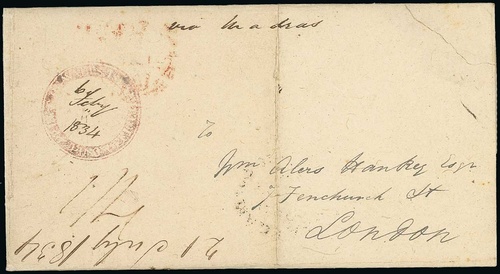 via Madras
6
Feby
1834
To
Wm Alers Hankey Esqr
7 Fenchurch St
London
21 July 1834